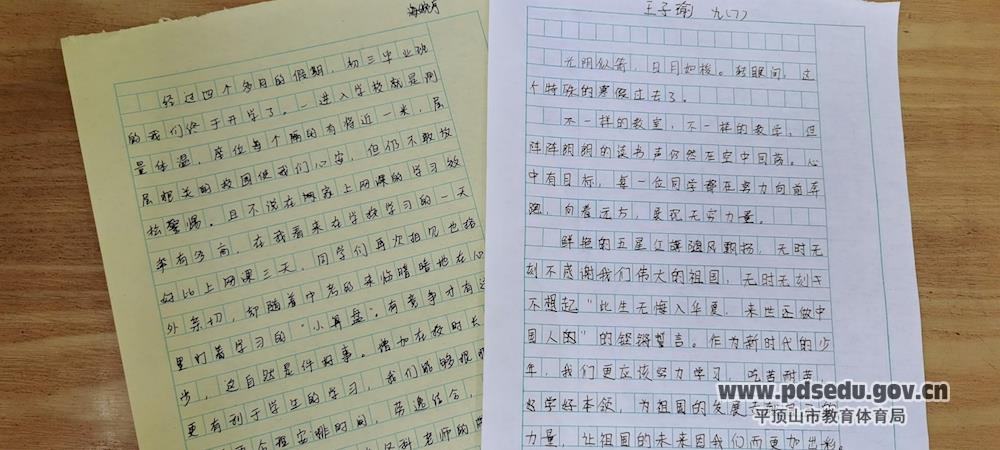 海明月
经过四个多月的假期，初三毕业班
的我们终于开学了。一进入学校就是测
量体温，座位每个隔的有将近一米，层
层把关的校园使我们心安，但仍不敢放
松警惕。且不说在家上网课的学习效
率有多高，在我看来在学校学习的一天
好比上网课三天，同学们再次相见也格
外亲切，却随着中考的来临暗暗地在心
里打着学习的“小算盘”。有竞争才有进
步，这自然是件好事。增加在校时长
更有利于学生的学习，我们能够
合理安排时间，劳逸结合，
各科老师的
王子瑜 九(7)
光阴似箭，日月如梭。转眼间，这
个特殊的寒假过去了。
不一样的教室，不一样的教学，但
阵阵朗朗的读书声仍然在空中回荡。心
中有目标，每一位同学都在努力向前奔
跑，向着远方，展现无穷力量。
鲜艳的五星红旗随风飘扬，无时无
刻不感谢我们伟大的祖国，无时无刻于
不想起“此生无悔入华夏，来世还做中
国人的”的铿锵誓言。作为新时代的少
年，我们更应该努力学习，吃苦耐劳，
学好本领，为祖国的发展
力量，让祖国的未来因我们而更加出彩。
www.pdsedu.gov.cn
平顶山市教育体育局